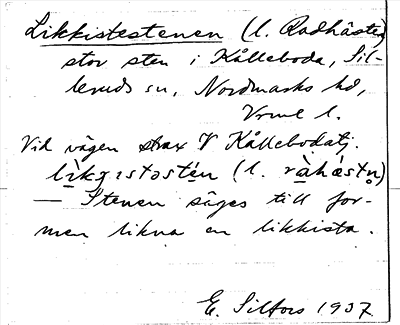 Likkistestenen (l. Radhästen)
stor sten i Kålleboda, Sil-
leruds sn, Nordmarks hd,
Vrml l.
Vid vägen strax V Kållebodatj.
lìkɡɪstəstén (l. ràhæ̀stn̥)
— Stenen säges till for-
men likna en likkista.
E. Silfors 1937